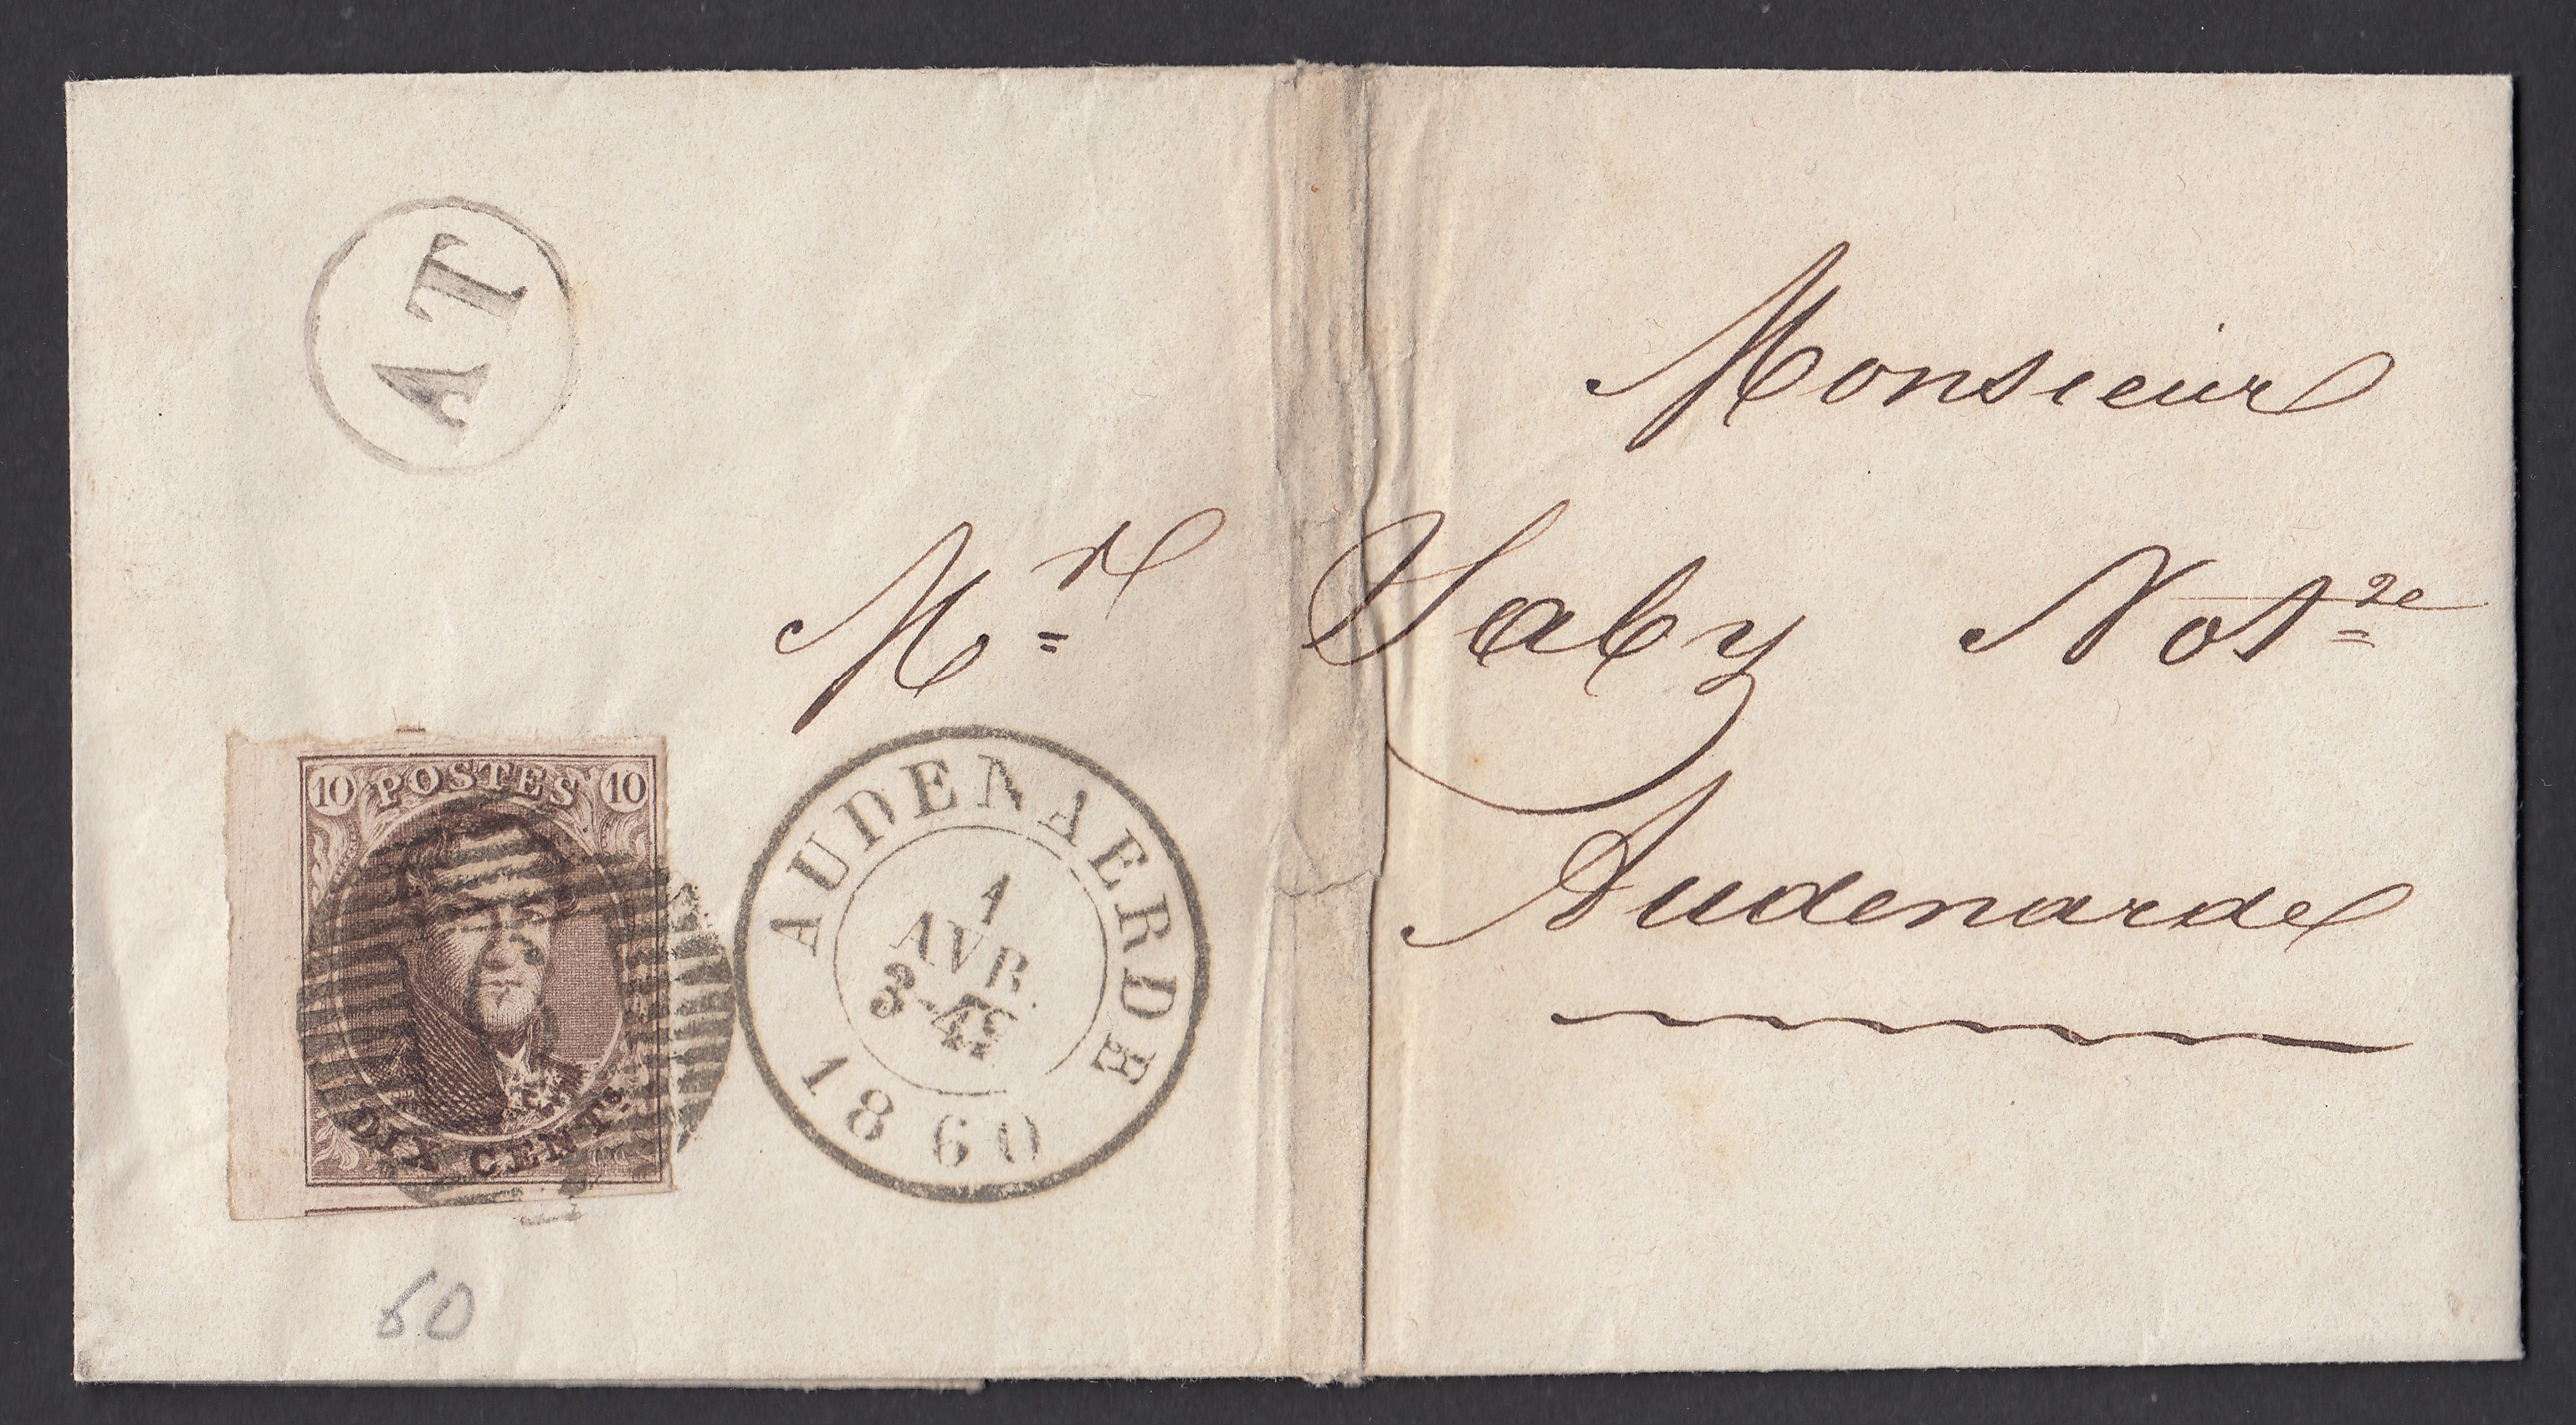 AT
Monsieur
Mr Saby Notre
Audenarde
10 POSTES 10
DIX CENTS
AUDENAERDE
1
AVR
1860
60